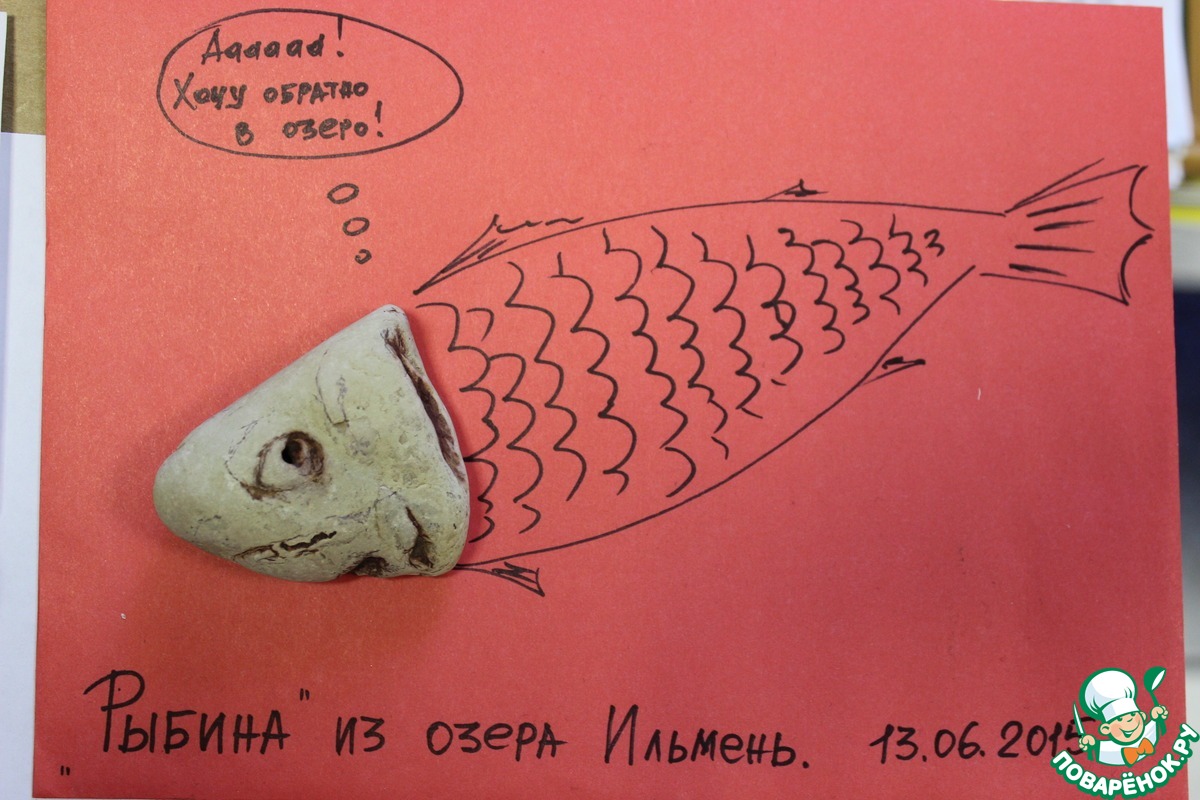 Аааааа!
Хочу обратно
в озеро!
„Рыбина" из озера Ильмень. 13.06.2015
ПОВАРЁНОК.РУ